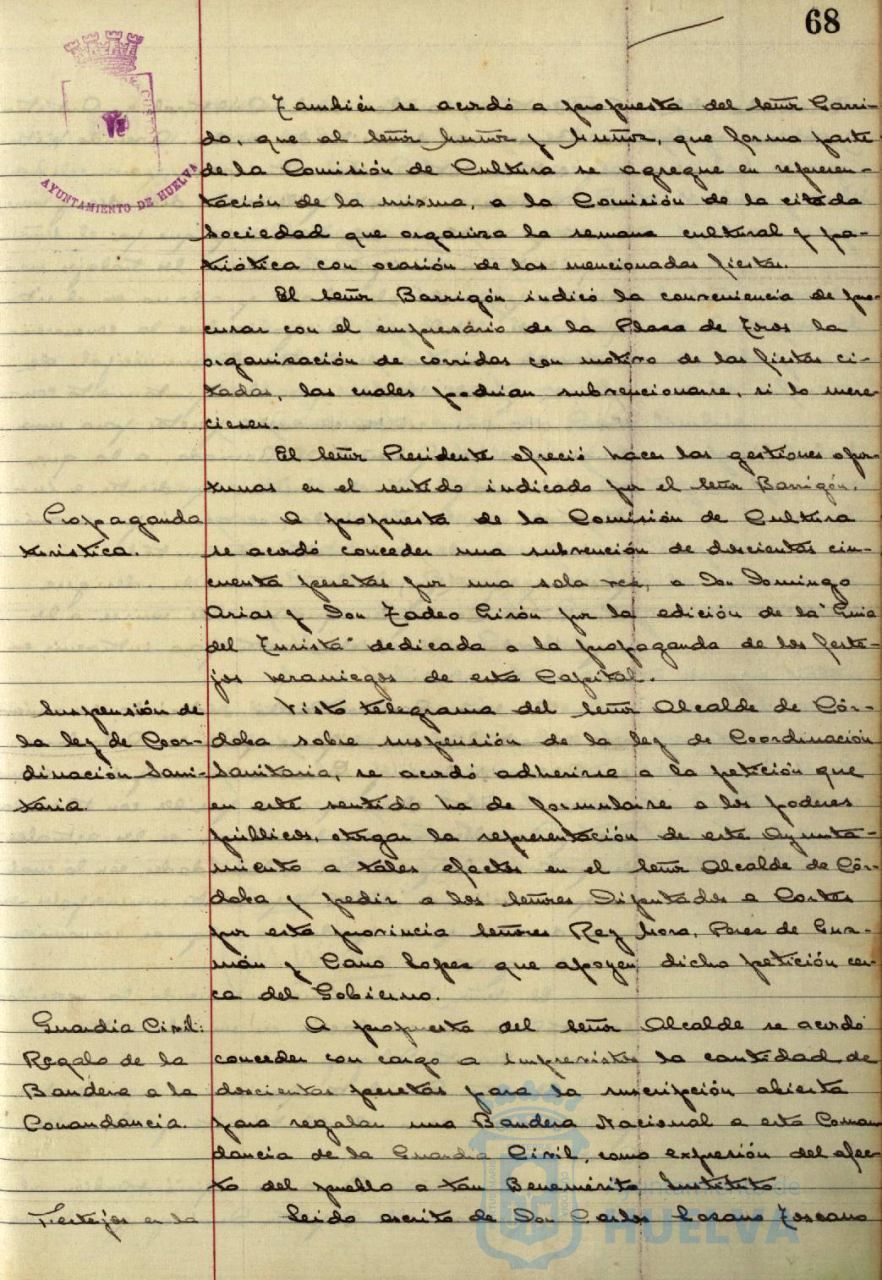 68
AYUNTAMIENTO DE HUELVA
También se acordó a propuesta del Señor Garri-
do, que al Señor Muñoz y Muñoz, que forma parte
de la Comisión de Cultura se agregue en represen-
tación de la misma, a la Comisión de la citada
Sociedad que organiza la semana cultural y pa-
triótica con ocasión de las mencionadas fiestas.
El Señor Barrigón indicó la conveniencia de pro-
curar con el empresário de la Plaza de Toros la
organización de corridas con motivo de las fiestas ci-
tadas, las cuales podrían subvencionarse, si lo mere-
ciesen.
El Señor Presidente ofreció hacer las gestiones opor-
tunas en el sentido indicado por el Señor Barrigón.
Propaganda
turística.
A propuesta de la Comisión de Cultura
se acordó conceder una subvención de doscientas cin-
cuenta pesetas por una sola vez, a Don Domingo
Arias y Don Tadeo Girón por la edición de la "Guia
del Turista" dedicada a la propaganda de los feste-
jos veraniegos de esta Capital.
Suspensión de
la ley de Coor-
dinación Sani-
taria.
Visto telegrama del Señor Alcalde de Cór-
doba sobre suspensión de la ley de Coordinación
Sanitaria, se acordó adherirse a la petición que
en este sentido ha de formularse a los poderes
públicos, otorgar la representación de este Ayunta-
miento a tales efectos en el Señor Alcalde de Cór-
doba y pedir a los Señores Diputados a Cortes
por esta provincia Señores Rey Mora, Perez de Guz-
mán y Cano Lopez que apoyen dicha petición cer-
ca del Gobierno.
Guardia Civil:
Regalo de la
Bandera a la
Comandancia.
A propuesta del Señor Alcalde se acordó
conceder con cargo a imprevistos la cantidad de
doscientas pesetas para la suscripción abierta
para regalar una Bandera Nacional a esta Coman
dancia de la Guardia Civil, como expresión del afec-
to del pueblo a tan Benemérito Instituto.
Festejos en la
Leido escrito de Don Carlos Lozano Toscano
HUELVA